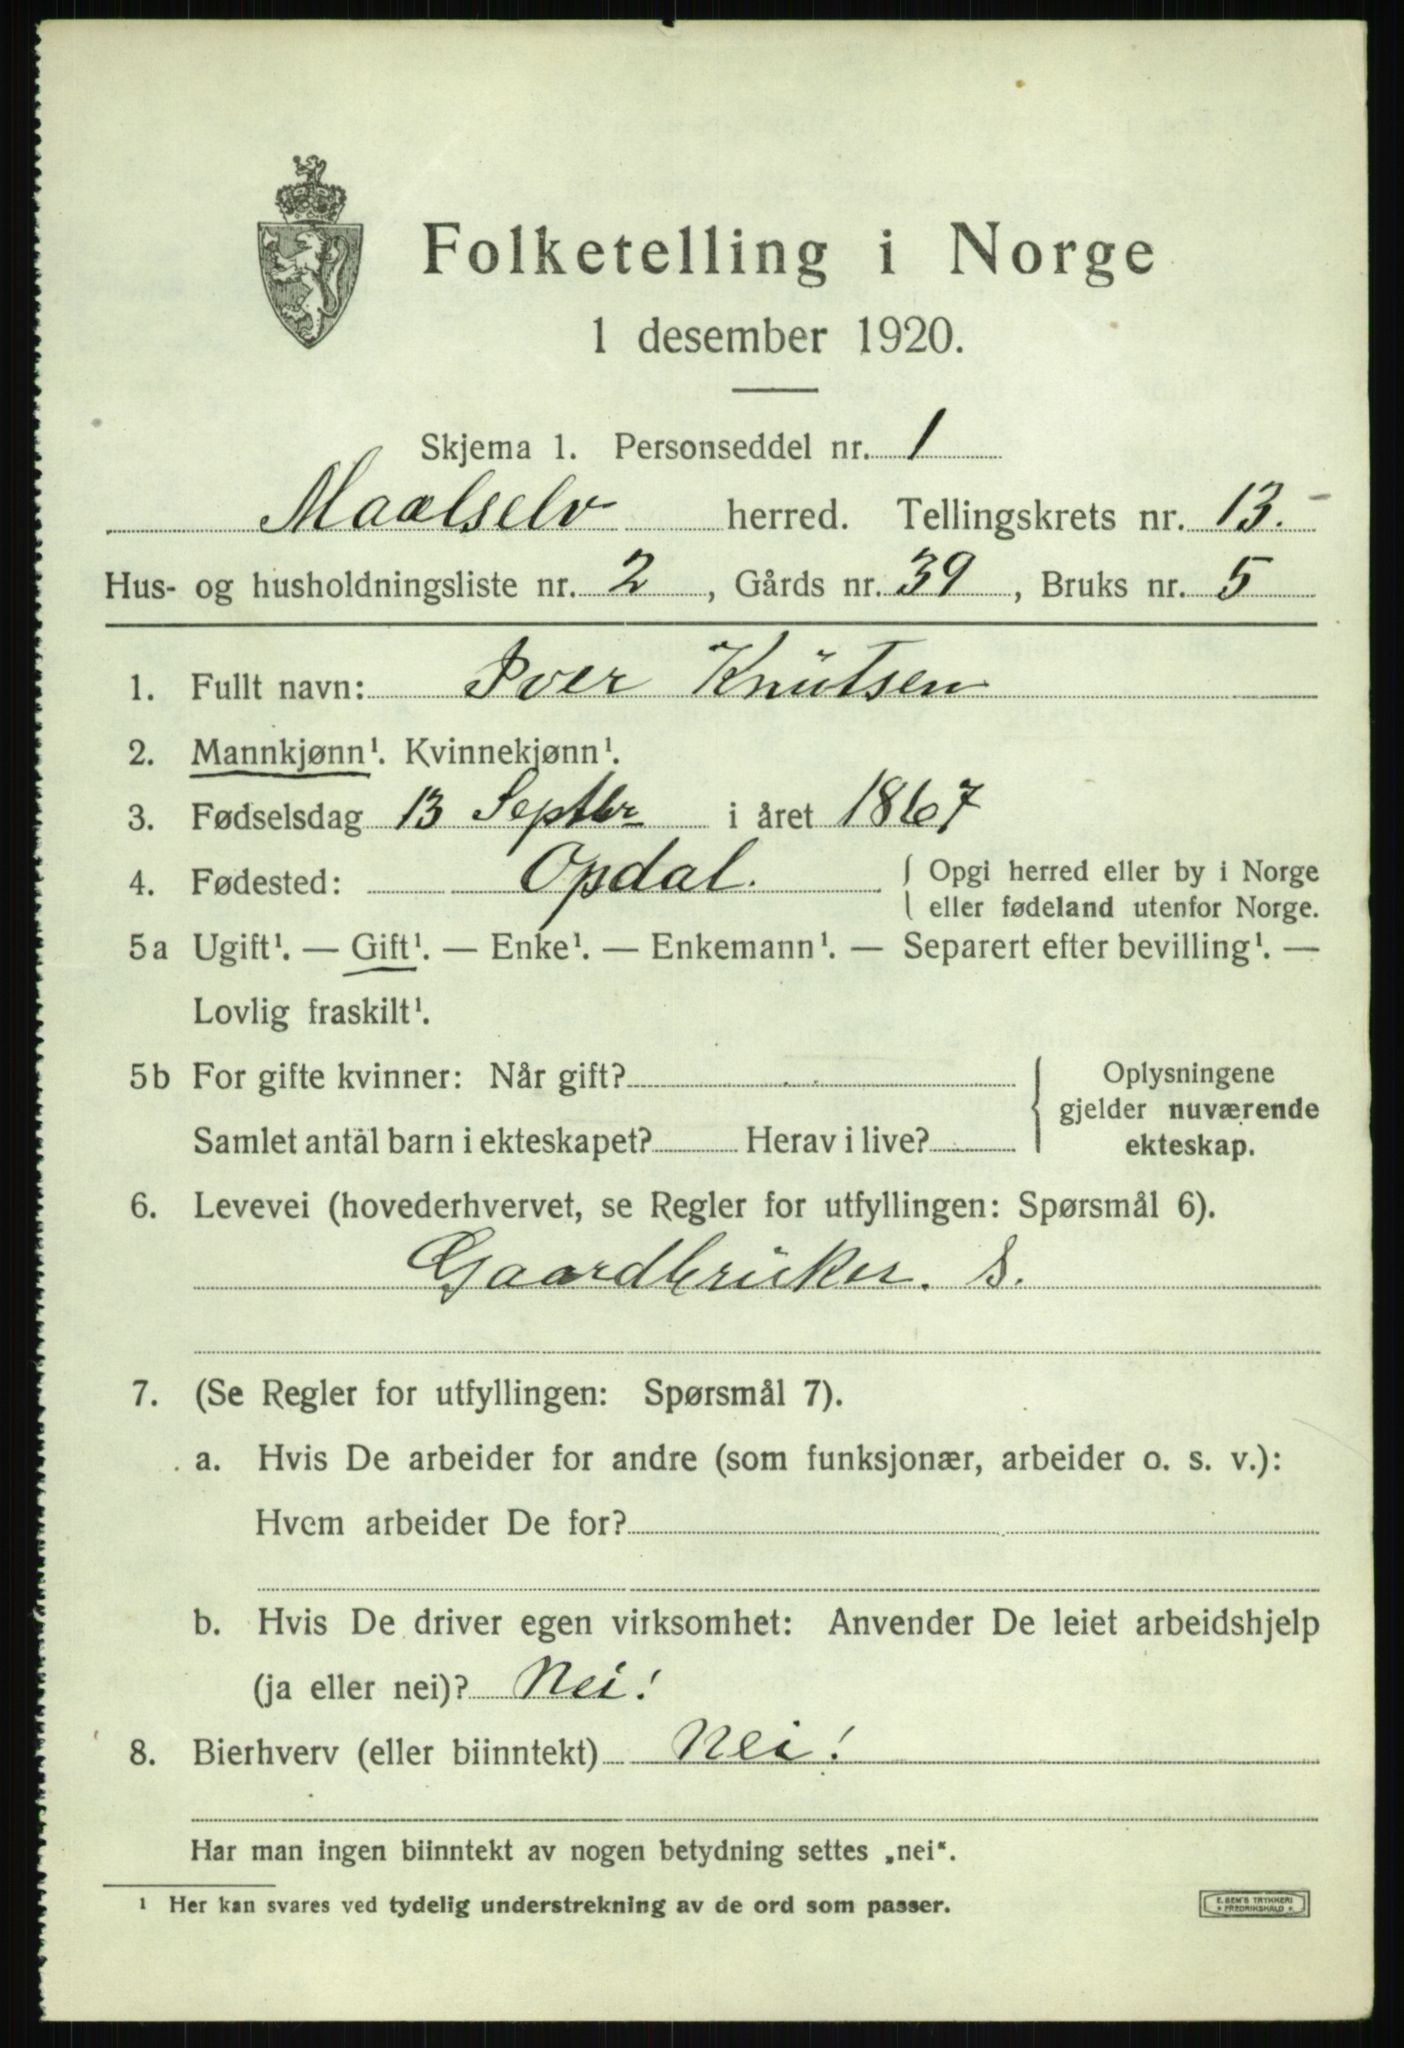 Folketelling i Norge
1 desember 1920.
Skjema 1. Personseddel nr. 1
Maalselv herred. Tellingskrets nr. 13.
Hus- og husholdningsliste nr. 2, Gårds nr. 39, Bruks nr. 5
1. Fullt navn: Iver Knutsen
2. Mannkjønn¹. Kvinnekjønn¹.
3. Fødselsdag 13 Septbr i året 1867
4. Fødested: Opdal. { Opgi herred eller by i Norge
eller fødeland utenfor Norge.
5a Ugift¹. — Gift¹. — Enke¹. — Enkemann¹. — Separert efter bevilling¹. —
Lovlig fraskilt¹.
5b For gifte kvinner: Når gift? { Oplysningene
gjelder nuværende
Samlet antal barn i ekteskapet? Herav i live? ekteskap.
6. Levevei (hovederhvervet, se Regler for utfyllingen: Spørsmål 6).
Gaardbruker. S.
7. (Se Regler for utfyllingen: Spørsmål 7).
a. Hvis De arbeider for andre (som funksjonær, arbeider o. s. v.):
Hvem arbeider De for?
b. Hvis De driver egen virksomhet: Anvender De leiet arbeidshjelp
(ja eller nei)? Nei!
8. Bierhverv (eller biinntekt) Nei!
Har man ingen biinntekt av nogen betydning settes „nei".
¹ Her kan svares ved tydelig understrekning av de ord som passer.
E. SEM'S TRYKKERI
* FREDRIKSHALD *